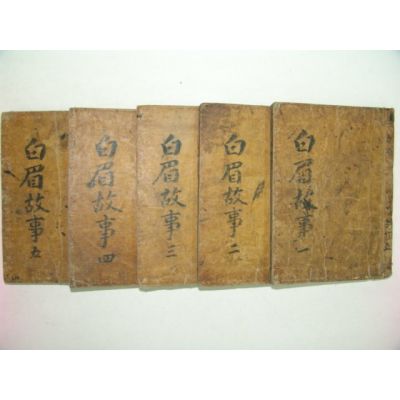 白眉故事一
白眉故事二
白眉故事三
白眉故事四
白眉故事五